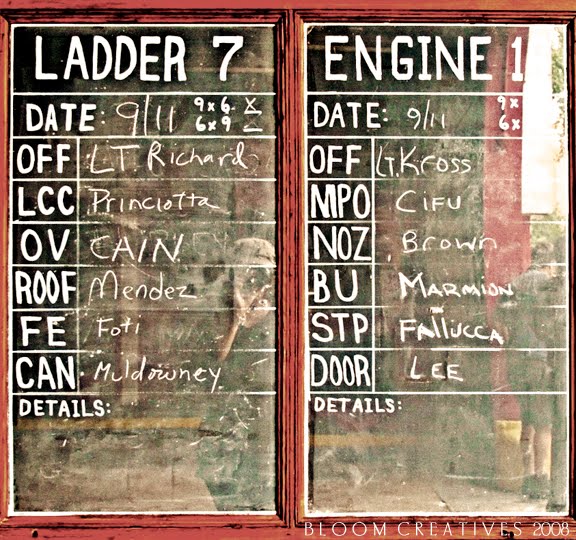 LADDER 7
DATE: 9/11 9x6 X
6x9
OFF LT. Richard
LCC Princiotta
OV CAIN
ROOF Mendez
FE Foti
CAN Muldowney
DETAILS:
ENGINE 1
DATE: 9/11 9x
6x
OFF Lt. Kross
MPO CIFU
NOZ Brown
BU MARMION
STP FAllUCCA
DOOR LEE
DETAILS:
BLOOM CREATIVES 2008